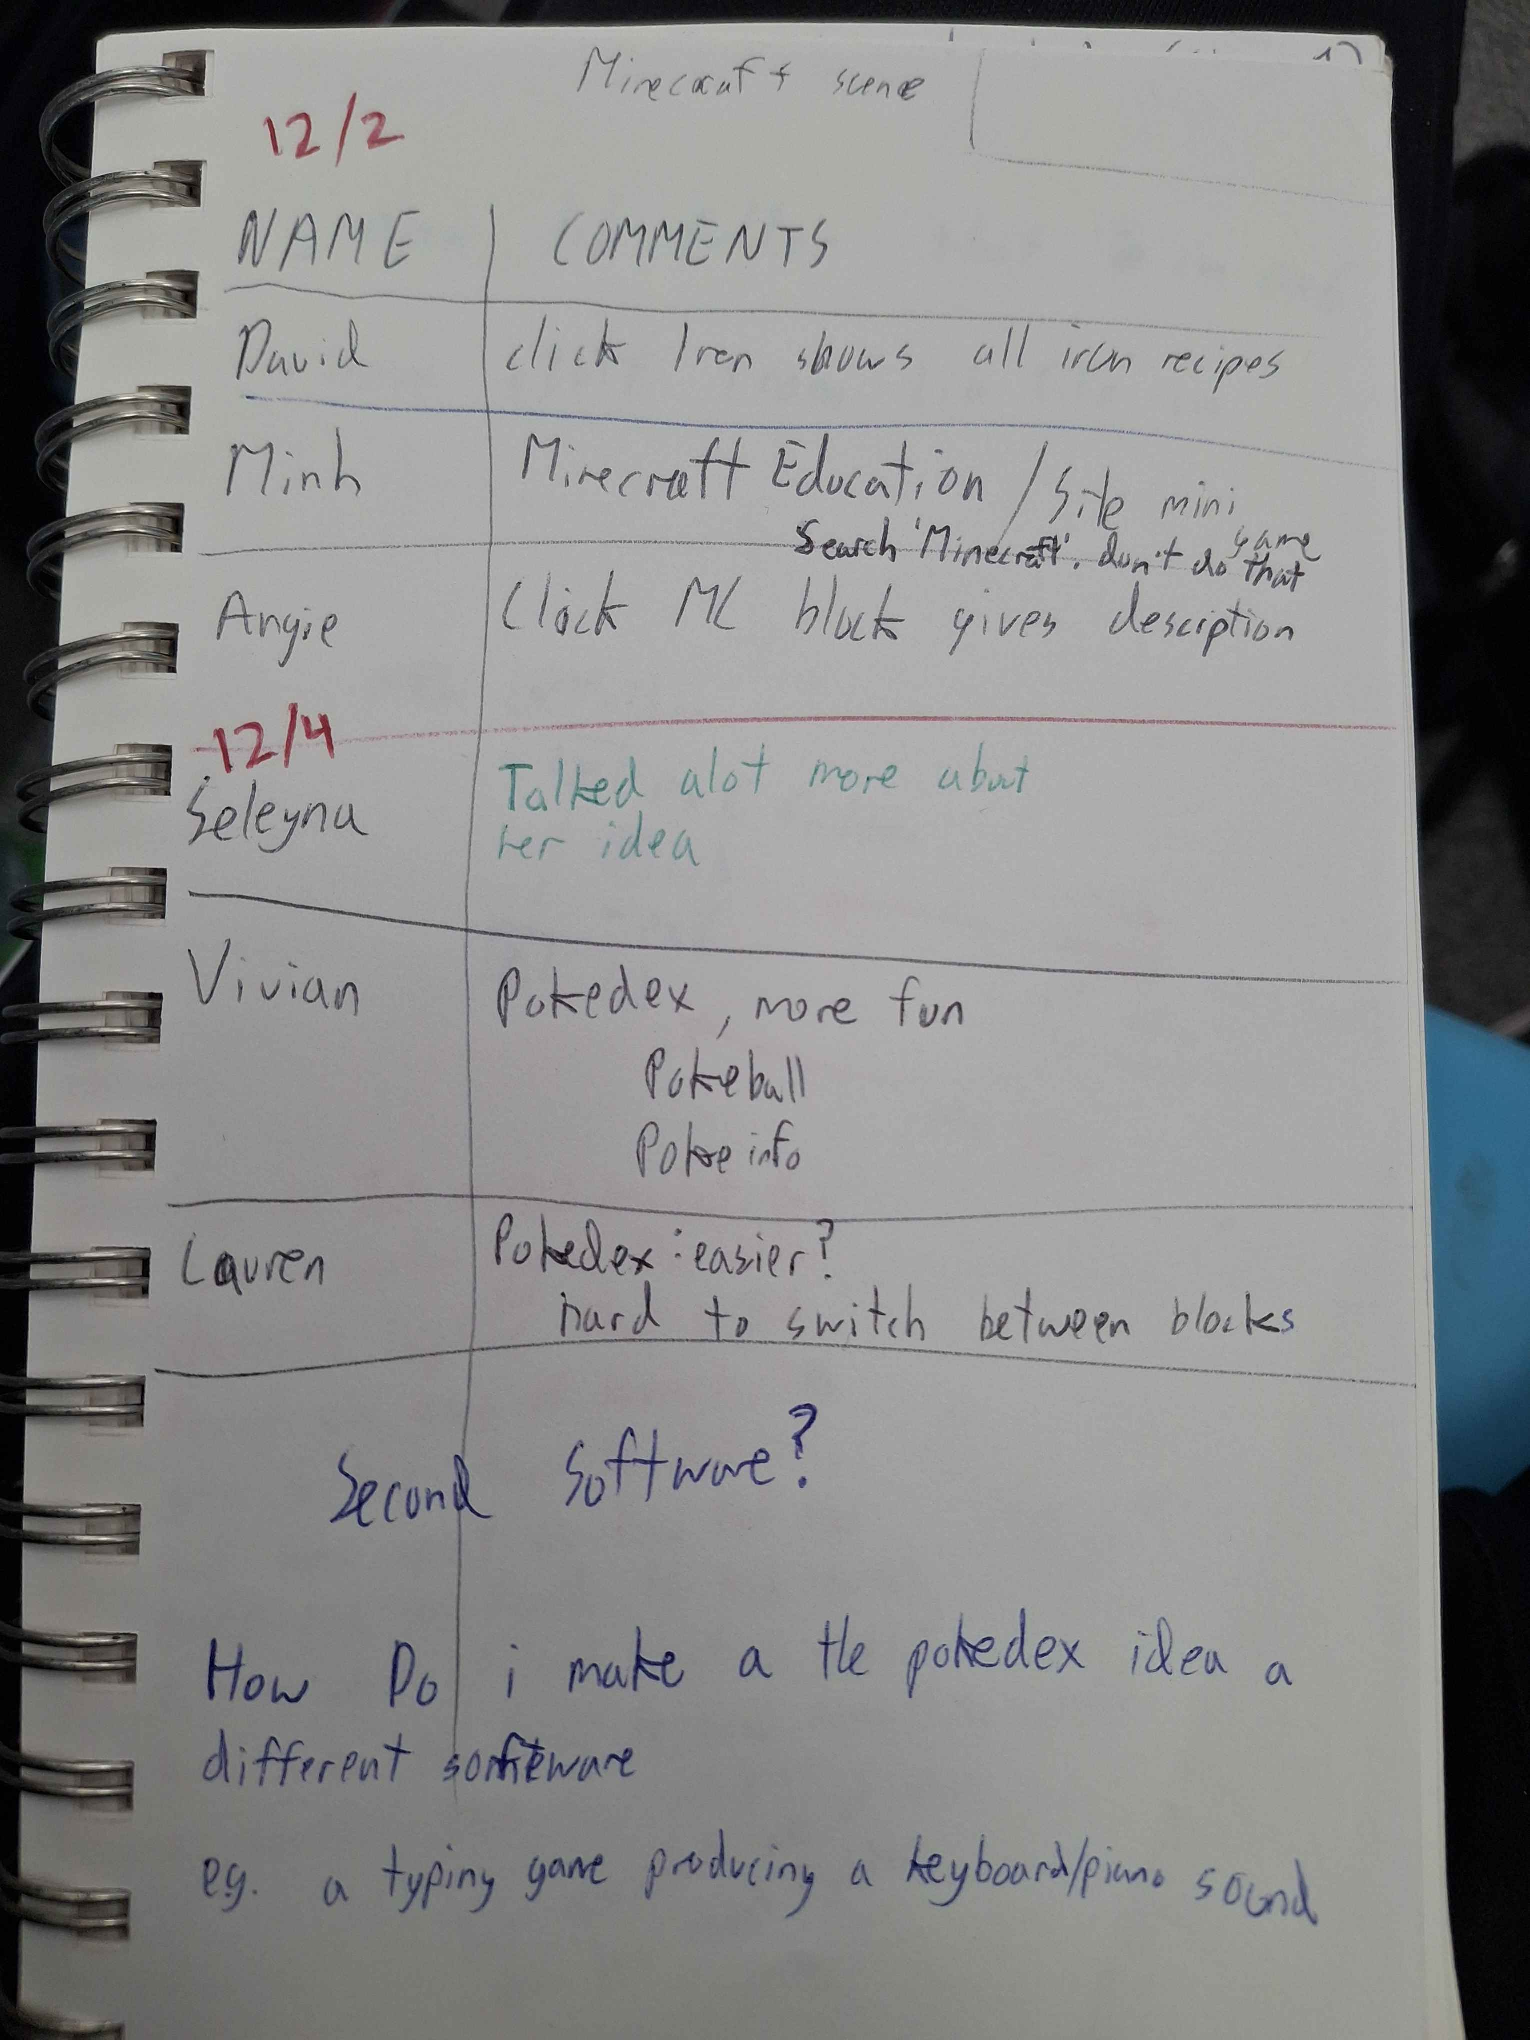 Minecraft scene
12/2
NAME COMMENTS
David click Iron shows all iron recipes
Minh Minecraft Education / Site mini game
Search 'Minecraft'. don't do that
Angie Click MC block gives desciption
12/4
Seleyna Talked alot more about
her idea
Vivian Pokedex, more fun
Pokeball
Poke info
Lauren Pokedex : easier?
hard to switch between blocks
Second Software?
How Do i make a the pokedex idea a
different software
eg. a typing game producing a keyboard/piano sound